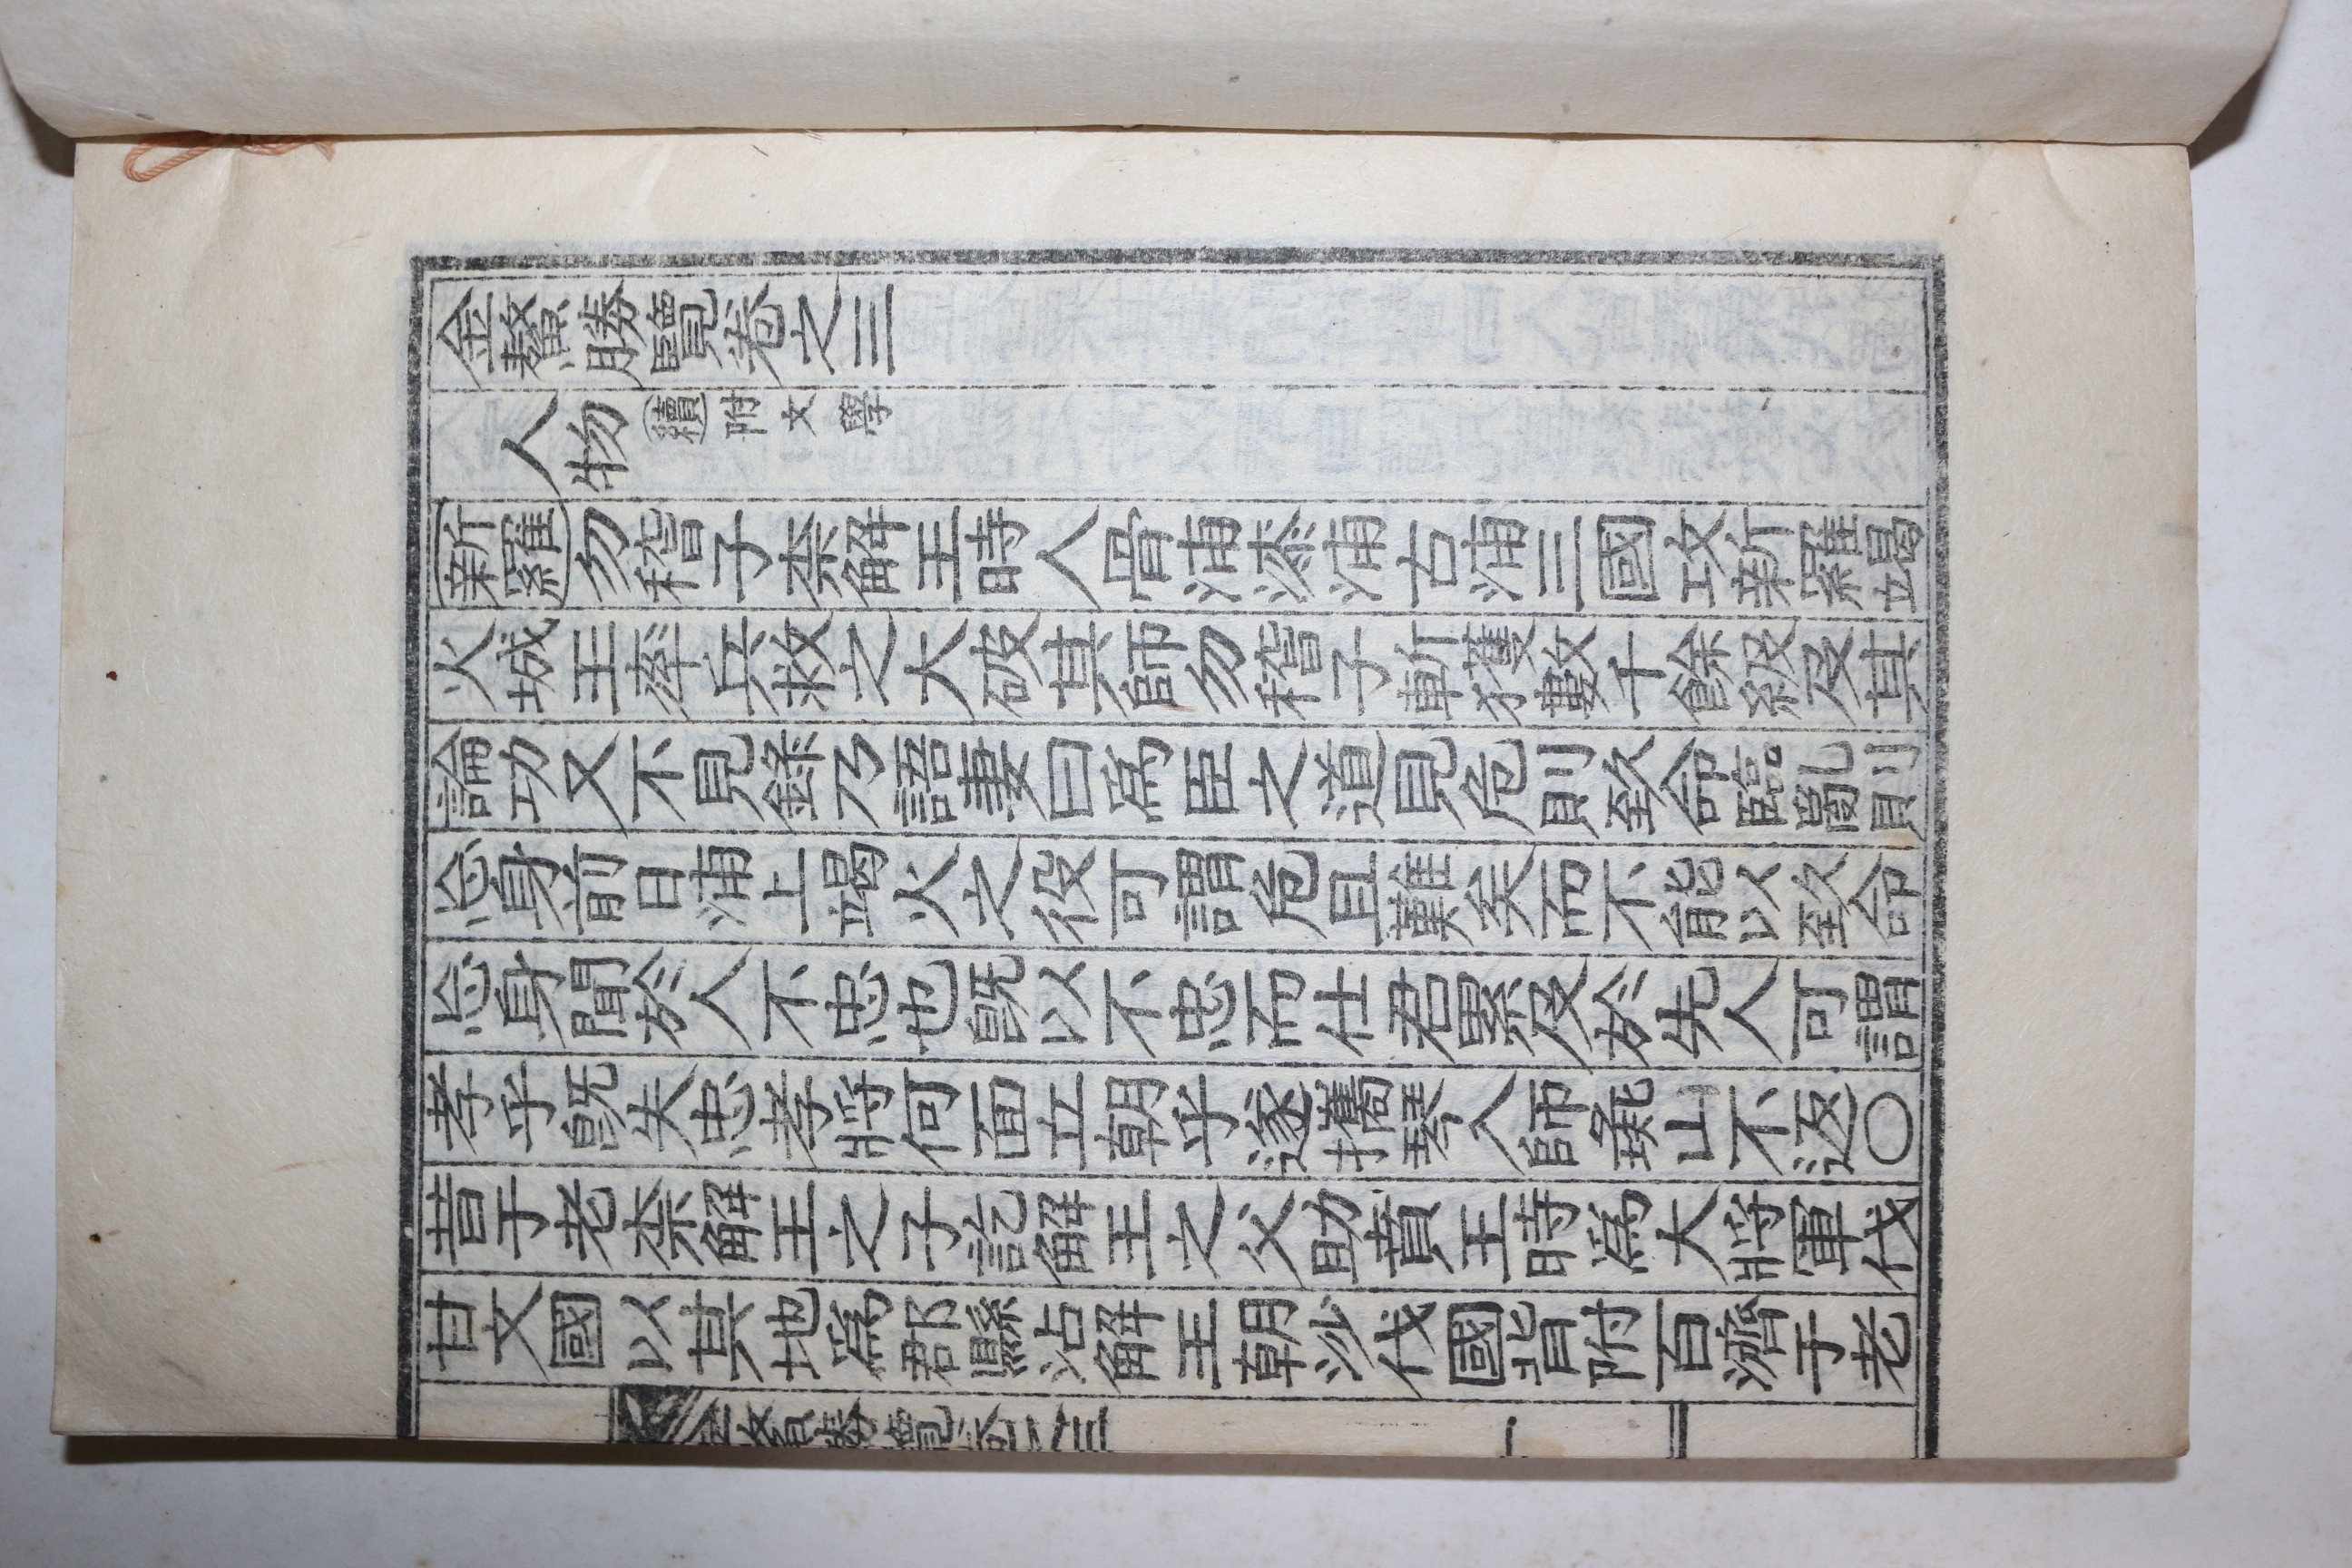 金鰲勝覽卷之三
人物 續附文學
新羅勿稽子柰解王時人骨浦柒浦古浦三國攻新羅竭
火城王率兵救之大破其師勿稽子斬獲數十餘級及其
論功又不見錄乃語妻曰爲臣之道見危則致命臨亂則
忘身前日浦上竭火之役可謂危且難矣而不能以致命
忘身聞於人不忠也旣以不忠而仕君累及於先人可謂
孝乎旣失忠孝將何面立朝乎遂攜琴入師彘山不返○
昔于老柰解王之子訖解王之父助賁王時爲大將軍伐
甘文國以其地爲郡縣沾解王朝沙伐國背附百濟于老
金鰲勝覽卷之三 一